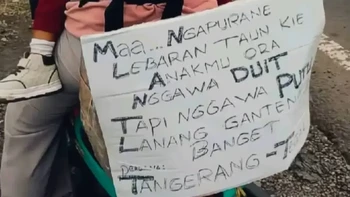 MAA... NGAPURANE
LEBARAN TAUN KIE
ANAKMU ORA
NGGAWA DUIT
TAPI NGGAWA
LANANG GANTEN
BANGET
TANGERANG -